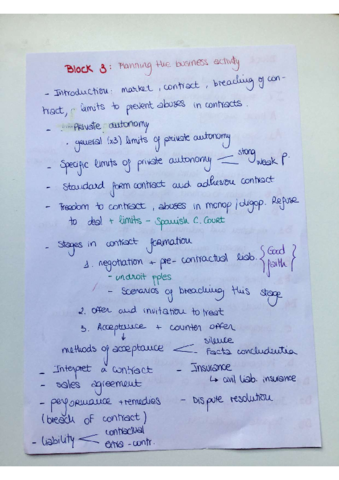 Block 3: Planning the business activity
- Introduction: market, contract, breaching of con-
tract, limits to prevent abuses in contracts.
- Private autonomy
. general (x3) limits of private autonomy
- Specific limits of private autonomy < strong
weak p.
- Standard form contract and adhesion contract
- Freedom to contract, abuses in monop/oligop. Refuse
to deal + limits - Spanish C. Court
- Stages in contract formation
1. negotiation + pre-contractual liab. {Good
faith}
- unidroit pples
- Scenarios of breaching this stage
2. offer and invitation to treat
3. Acceptance + counter offer
↓
methods of acceptance < silence
Facta concludentia
- Interpret a contract
- sales agreement
- performance + remedies
(breach of contract)
- liability < contractual
extra-contr.
- Insurance
↳ civil liab. insurance
- Dispute resolution